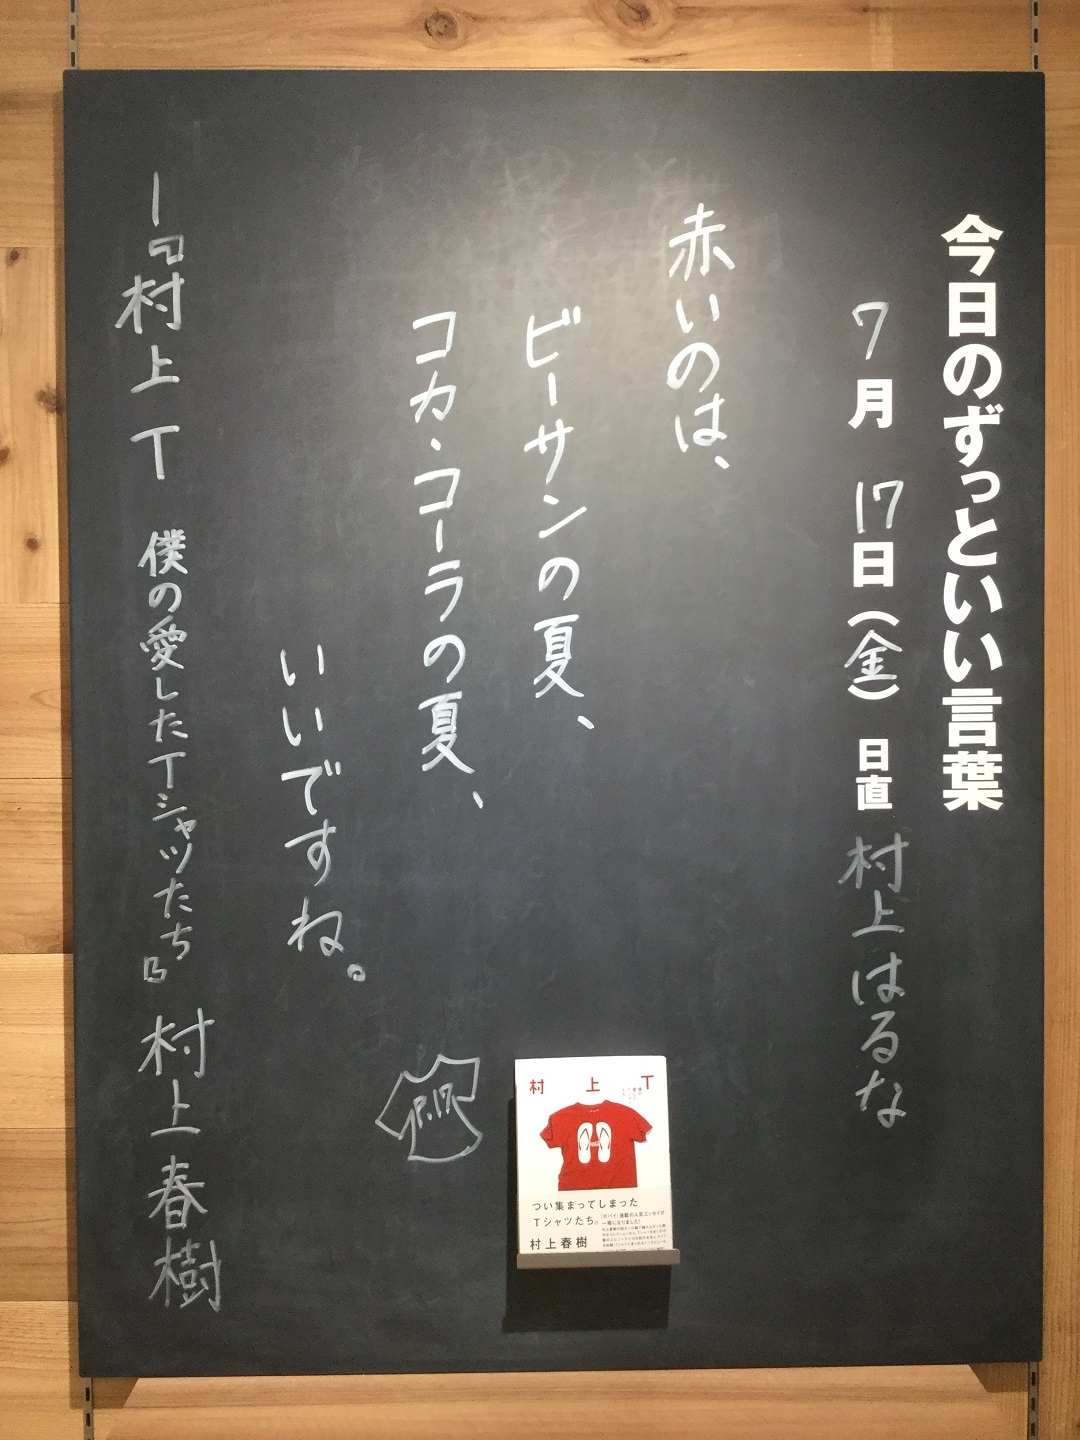 今日のずっといい言葉
7月17日(金) 日直 村上はるな
赤いのは、
ビーサンの夏、
コカ・コーラの夏、
いいですね。
―『村上T 僕の愛したTシャツたち』村上春樹
村上T
つい集まってしまった
Tシャツたち。
村上春樹